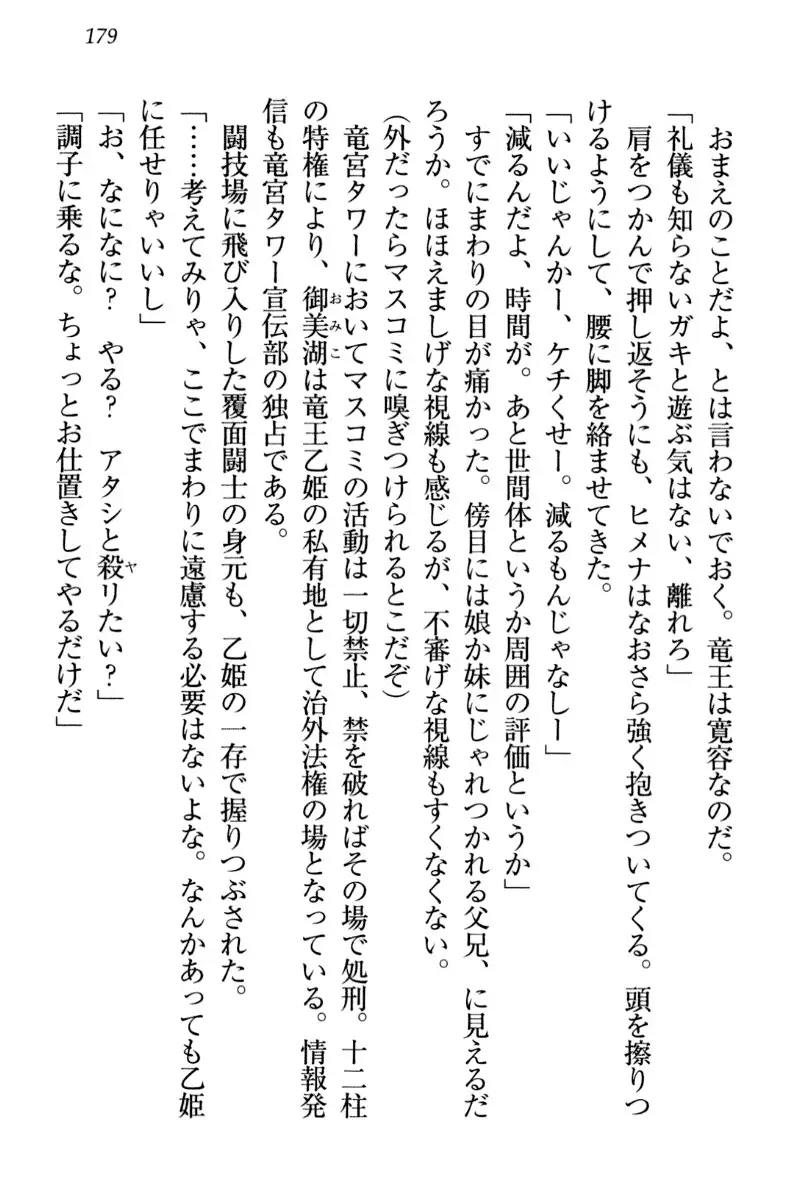 179
おまえのことだよ、とは言わないでおく。竜王は寛容なのだ。
「礼儀も知らないガキと遊ぶ気はない、離れろ」
肩をつかんで押し返そうにも、ヒメナはなおさら強く抱きついてくる。頭を擦りつ
けるようにして、腰に脚を絡ませてきた。
「いいじゃんかー、ケチくせー。減るもんじゃなしー」
「減るんだよ、時間が。あと世間体というか周囲の評価というか」
すでにまわりの目が痛かった。傍目には娘か妹にじゃれつかれる父兄、に見えるだ
ろうか。ほほえましげな視線も感じるが、不審げな視線もすくなくない。
(外だったらマスコミに嗅ぎつけられるとこだぞ)
竜宮タワーにおいてマスコミの活動は一切禁止、禁を破ればその場で処刑。十二柱
の特権により、御美湖は竜王乙姫の私有地として治外法権の場となっている。情報発
おみこ
信も竜宮タワー宣伝部の独占である。
闘技場に飛び入りした覆面闘士の身元も、乙姫の一存で握りつぶされた。
「……考えてみりゃ、ここでまわりに遠慮する必要はないよな。なんかあっても乙姫
に任せりゃいいし」
「お、なになに？　やる？　アタシと殺リたい？」
ヤ
「調子に乗るな。ちょっとお仕置きしてやるだけだ」